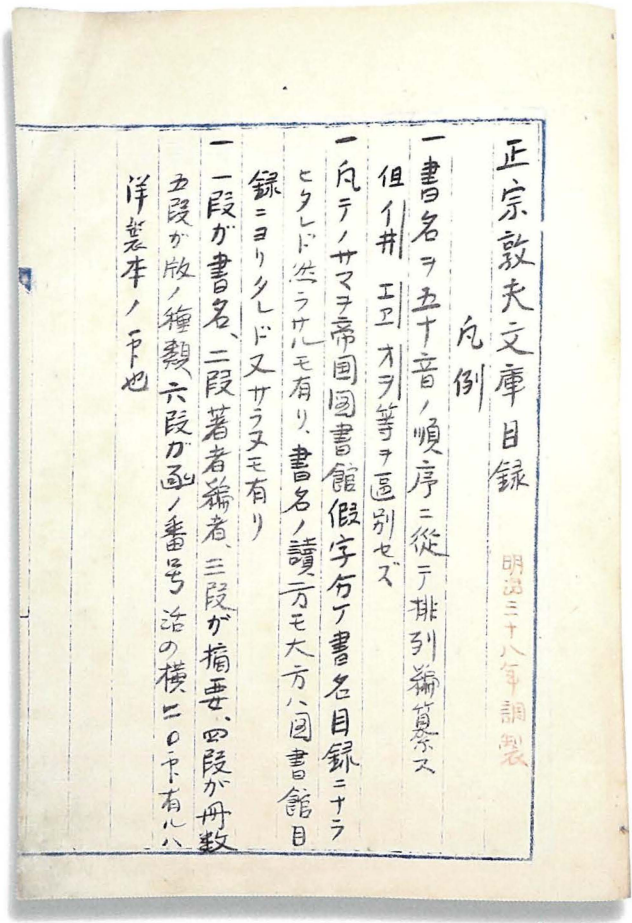 正宗敦夫文庫目録
明治三十八年調製
凡例
一 書名ヲ五十音ノ順序ニ從テ排列編纂ス
但イヰ エヱ オヲ等ヲ區別セズ
一 凡テノサマヲ帝国図書館假字分ケ書名目録ニナラ
ヒタレド然ラサルモ有リ、書名ノ讀方モ大方ハ図書館目
録ニヨリタレド又サラヌモ有リ
一 一段が書名、二段著者編者、三段が摘要、四段が冊数
五段が版ノ種類、六段が函ノ番号 活の横ニ○印有ルハ
洋製本ノ印也